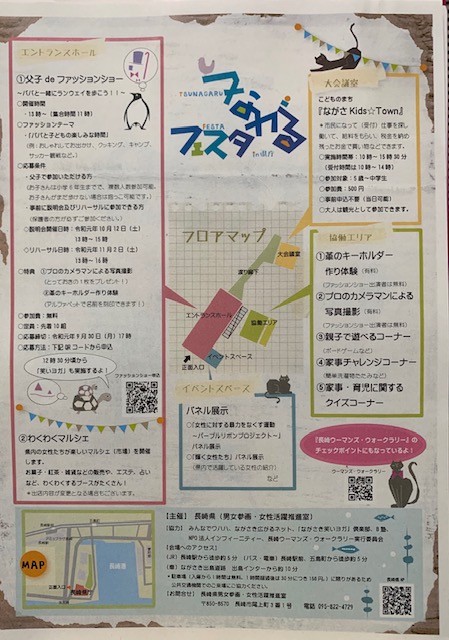 エントランスホール
①父子 de ファッションショー
～パパと一緒にランウェイを歩こう！！～
○開催時間
・13時～（集合時間11時）
○ファッションテーマ
・「パパと子どもの楽しみな時間」
（例：おしゃれしてお出かけ、クッキング、キャンプ、
サッカー観戦など。）
○応募条件
・父子で参加いただける方
・事前に説明会及びリハーサルに参加できる方
（保護者の方が必ずご参加ください。）
○説明会開催日時：令和元年10月12日（土）
13時～15時
○リハーサル日時：令和元年11月2日（土）
13時～16時
○特典 ①プロのカメラマンによる写真撮影
（とっておきの1枚をプレゼント！）
②革のキーホルダー作り体験
（アルファベットで名前を刻印できます！）
○参加費：無料
○定員：先着10組
○応募締切：令和元年9月30日（月）17時
○応募方法：下記QRコードから申込
12時30分頃から
「笑いヨガ」も実施するよ！
ファッションショー申込
②わくわくマルシェ
県内の女性たちが楽しいマルシェ（市場）を開催
します。
お菓子・紅茶・雑貨などの販売や、エステ、占い
など、わくわくするブースがたくさん！
＊出店内容が変更となる場合もございます。
TSUNAGARU
つながる
FESTA
フェスタ
in県庁
フロアマップ
大会議室
渡り廊下
エントランスホール
協働エリア
イベントスペース
正面入口
イベントスペース
パネル展示
○「女性に対する暴力をなくす運動
～パープルリボンプロジェクト～」
パネル展示
○「輝く女性たち」パネル展示
（県内で活躍している女性の紹介）
など
大会議室
こどものまち
『ながさKids☆Town』
○市民になって（受付）仕事を探し
働いて、給料をもらい、税金を納め
残ったお金で買い物などできます。
○実施時間帯：10時～15時30分
（受付時間は10時～14時）
○参加対象：5歳～中学生
○参加費：500円
○事前申込不要（当日可能）
○大人は観光として参加できます。
協働エリア
①革のキーホルダー
作り体験（有料）
（ファッションショー出演者は無料）
②プロのカメラマンによる
写真撮影（有料）
（ファッションショー出演者は無料）
③親子で遊べるコーナー
（ボードゲームなど）
④家事チャレンジコーナー
（簡単洗濯物たたみなど）
⑤家事・育児に関する
クイズコーナー
「長崎ウーマンズ・ウォークラリー」の
チェックポイントにもなっているよ！
ウーマンズ・ウォークラリー
MAP
長崎港
長崎県庁
【主催】 長崎県（男女参画・女性活躍推進室）
NPO法人インフィーニティー、長崎ウーマンズ・ウォークラリー実行委員会
【会場へのアクセス】
（JR）長崎駅から徒歩約5分 （バス・電車）長崎駅前、五島町から徒歩約5分
（車）ながさき出島道路 出島インターから約10分
公共交通機関でのご来場にご協力ください。
【お問合せ】 長崎県男女参画・女性活躍推進室
〒850-8570 長崎市尾上町3番1号 電話 095-822-4729
長崎県HP